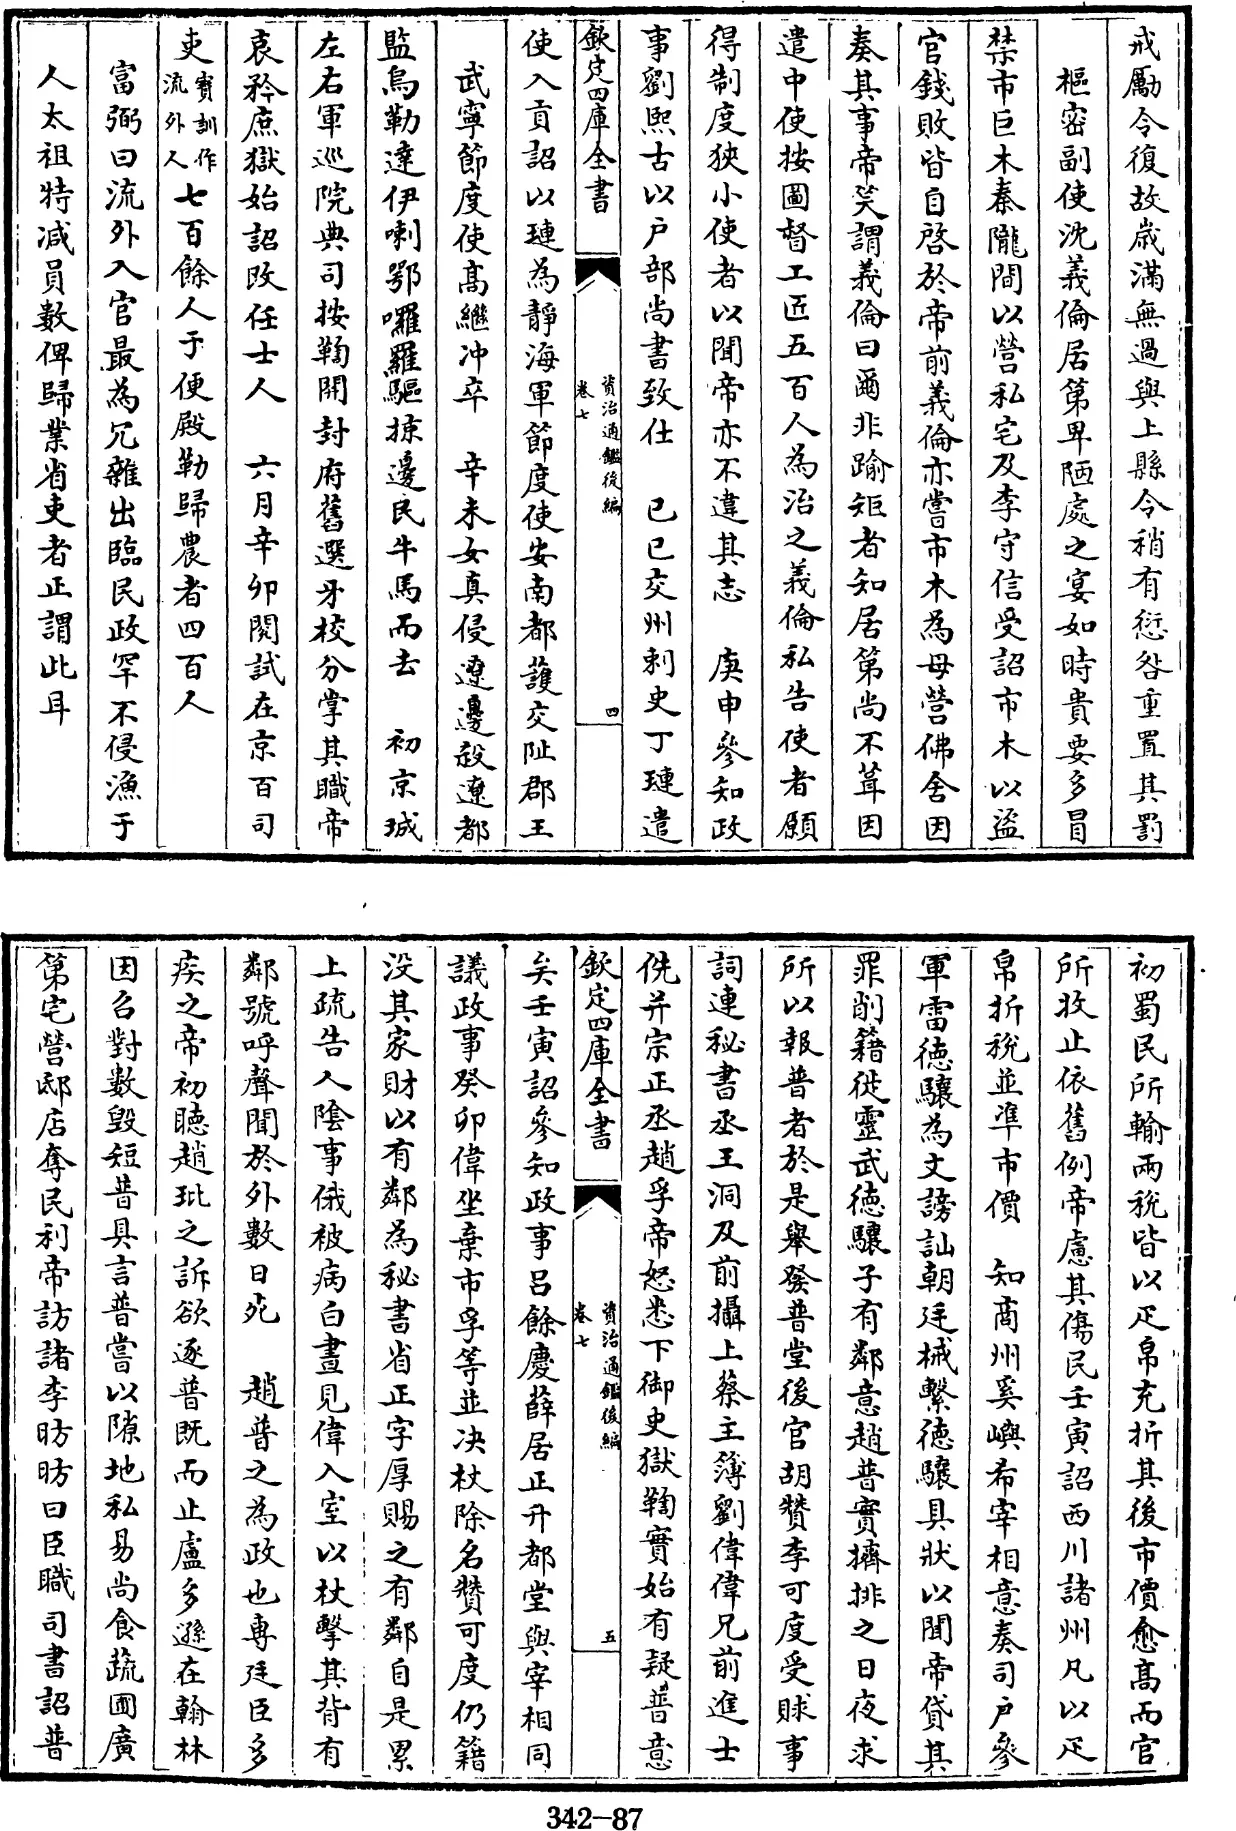 戒勵令復故歳滿無過與上縣令稍有愆咎重置其罰
樞密副使沈義倫居第卑陋處之宴如時貴要多冒
禁市巨木秦隴間以營私宅及李守信受詔市木以盜
官錢敗皆自啓於帝前義倫亦嘗市木為母營佛舍因
奏其事帝笑謂義倫曰爾非踰矩者知居第尚不葺因
遣中使按圖督工匠五百人為治之義倫私告使者願
得制度狹小使者以聞帝亦不違其志 庚申參知政
事劉熙古以户部尚書致仕 已已交州刺史丁璉遣
欽定四庫全書 資治通鑑後編 卷七 四
使入貢詔以璉為靜海軍節度使安南都護交阯郡王
武寧節度使髙繼沖卒 辛未女真侵遼邊殺遼都
監烏勒達伊喇鄂囉羅驅掠邊民牛馬而去 初京城
左右軍巡院典司按鞫開封府舊選牙校分掌其職帝
哀矜庶獄始詔改任士人 六月辛卯閲試在京百司
吏寳訓作流外人七百餘人于便殿勒歸農者四百人
富弼曰流外入官最為冗雜出臨民政罕不侵漁于
人太祖特減員數俾歸業省吏者正謂此耳
初蜀民所輸兩稅皆以疋帛充折其後市價愈髙而官
所收止依舊例帝慮其傷民壬寅詔西川諸州凡以疋
帛折稅並準市價 知商州奚嶼希宰相意奏司户參
軍雷德驤為文謗訕朝廷械繫德驤具狀以聞帝貸其
罪削籍徙靈武德驤子有鄰意趙普實擠排之日夜求
所以報普者於是舉發普堂後官胡贊李可度受賕事
詞連秘書丞王洞及前攝上蔡主簿劉偉偉兄前進士
侁并宗正丞趙孚帝怒悉下御史獄鞫實始有疑普意
欽定四庫全書 資治通鑑後編 卷七 五
矣壬寅詔參知政事呂餘慶薛居正升都堂與宰相同
議政事癸卯偉坐棄市孚等並决杖除名贊可度仍籍
没其家財以有鄰為秘書省正字厚賜之有鄰自是累
上疏告人隂事俄被病白晝見偉入室以杖擊其背有
鄰號呼聲聞於外數日死 趙普之為政也專廷臣多
疾之帝初聴趙玭之訴欲逐普既而止盧多遜在翰林
因召對數毀短普具言普嘗以隙地私易尚食蔬圃廣
第宅營邸店奪民利帝訪諸李昉昉曰臣職司書詔普
342-87